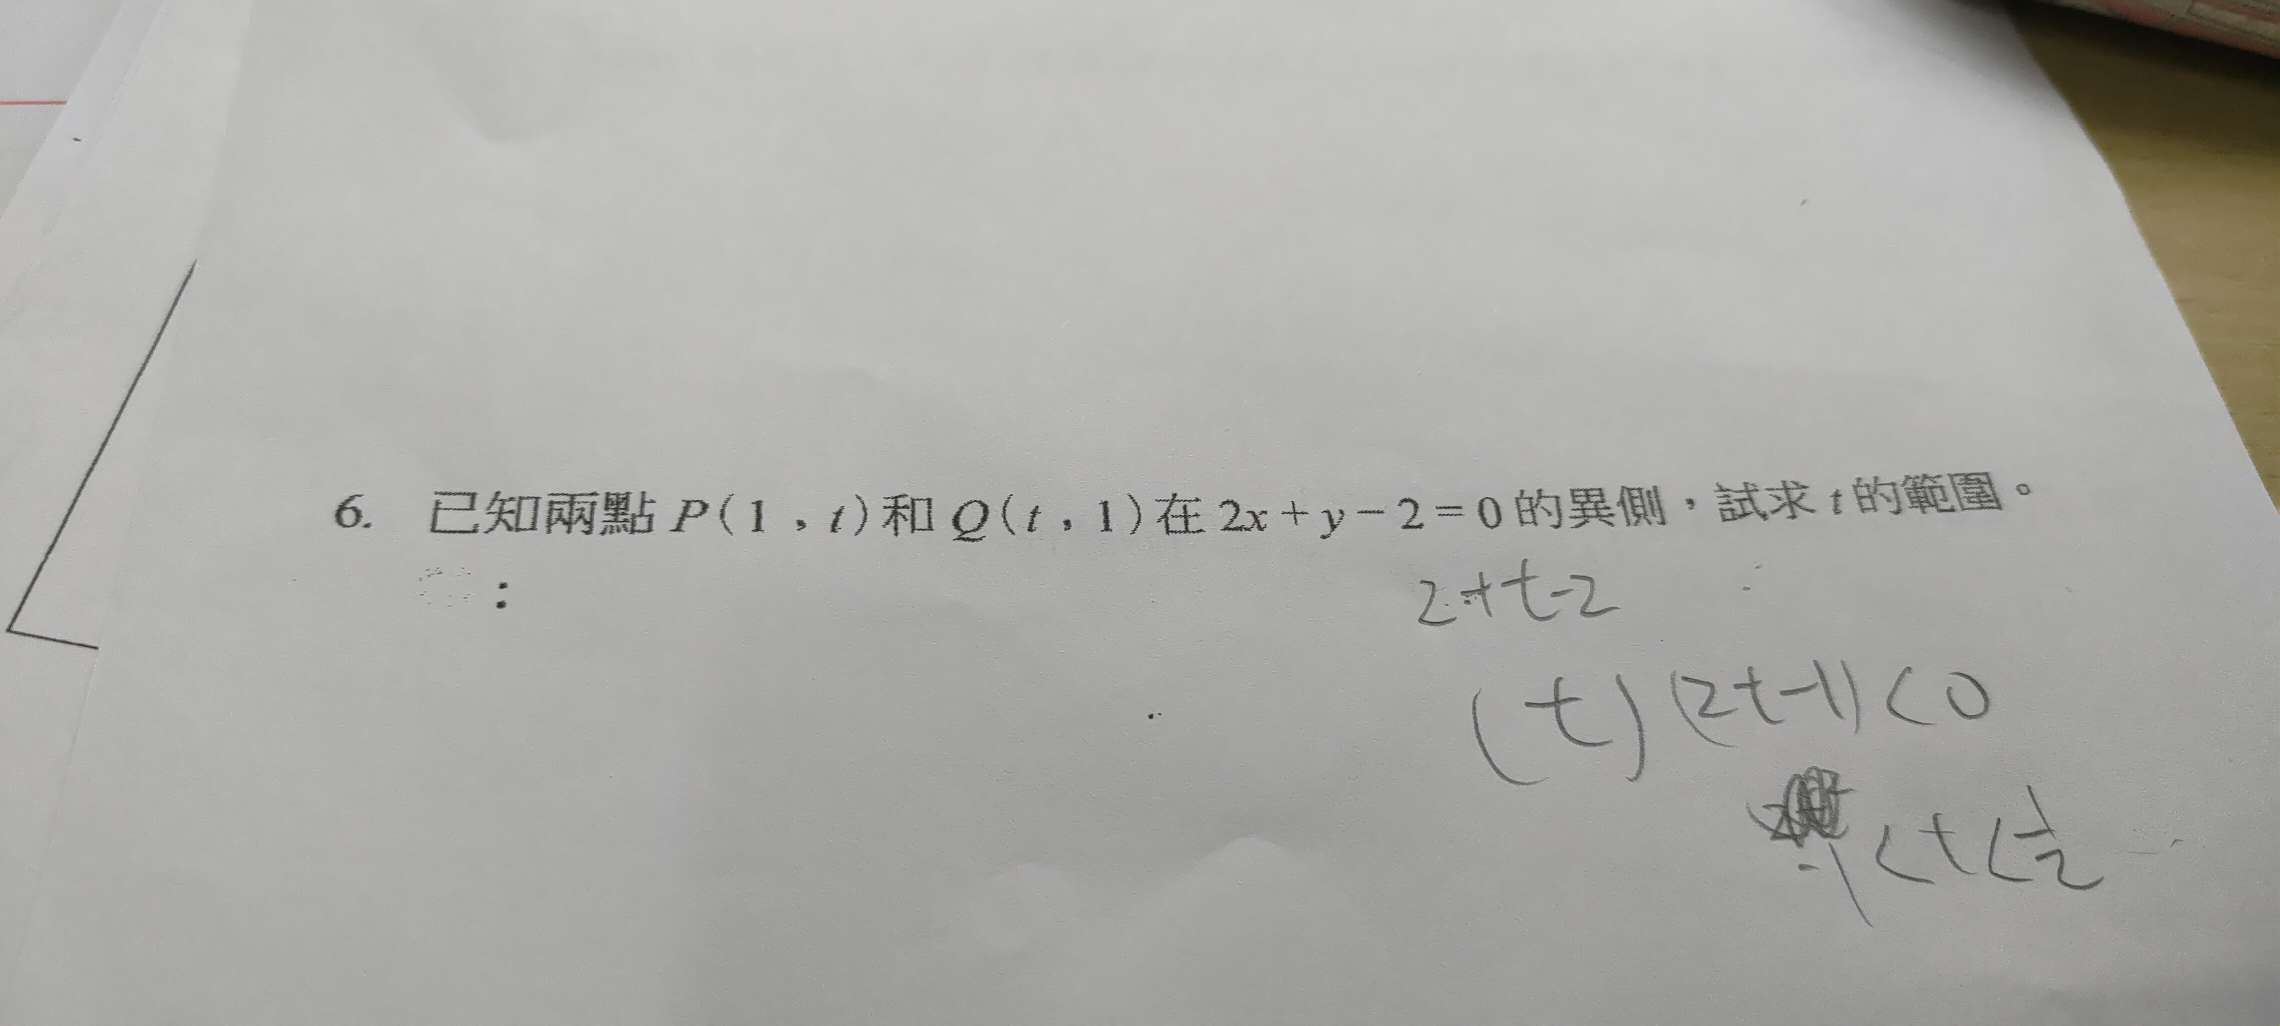 6. 已知兩點 P(1,t)和 Q(t,1)在 2x+y-2=0 的異側,試求 t 的範圍。
:
2+t-2
(t)(2t-1)<0
<t<1/2